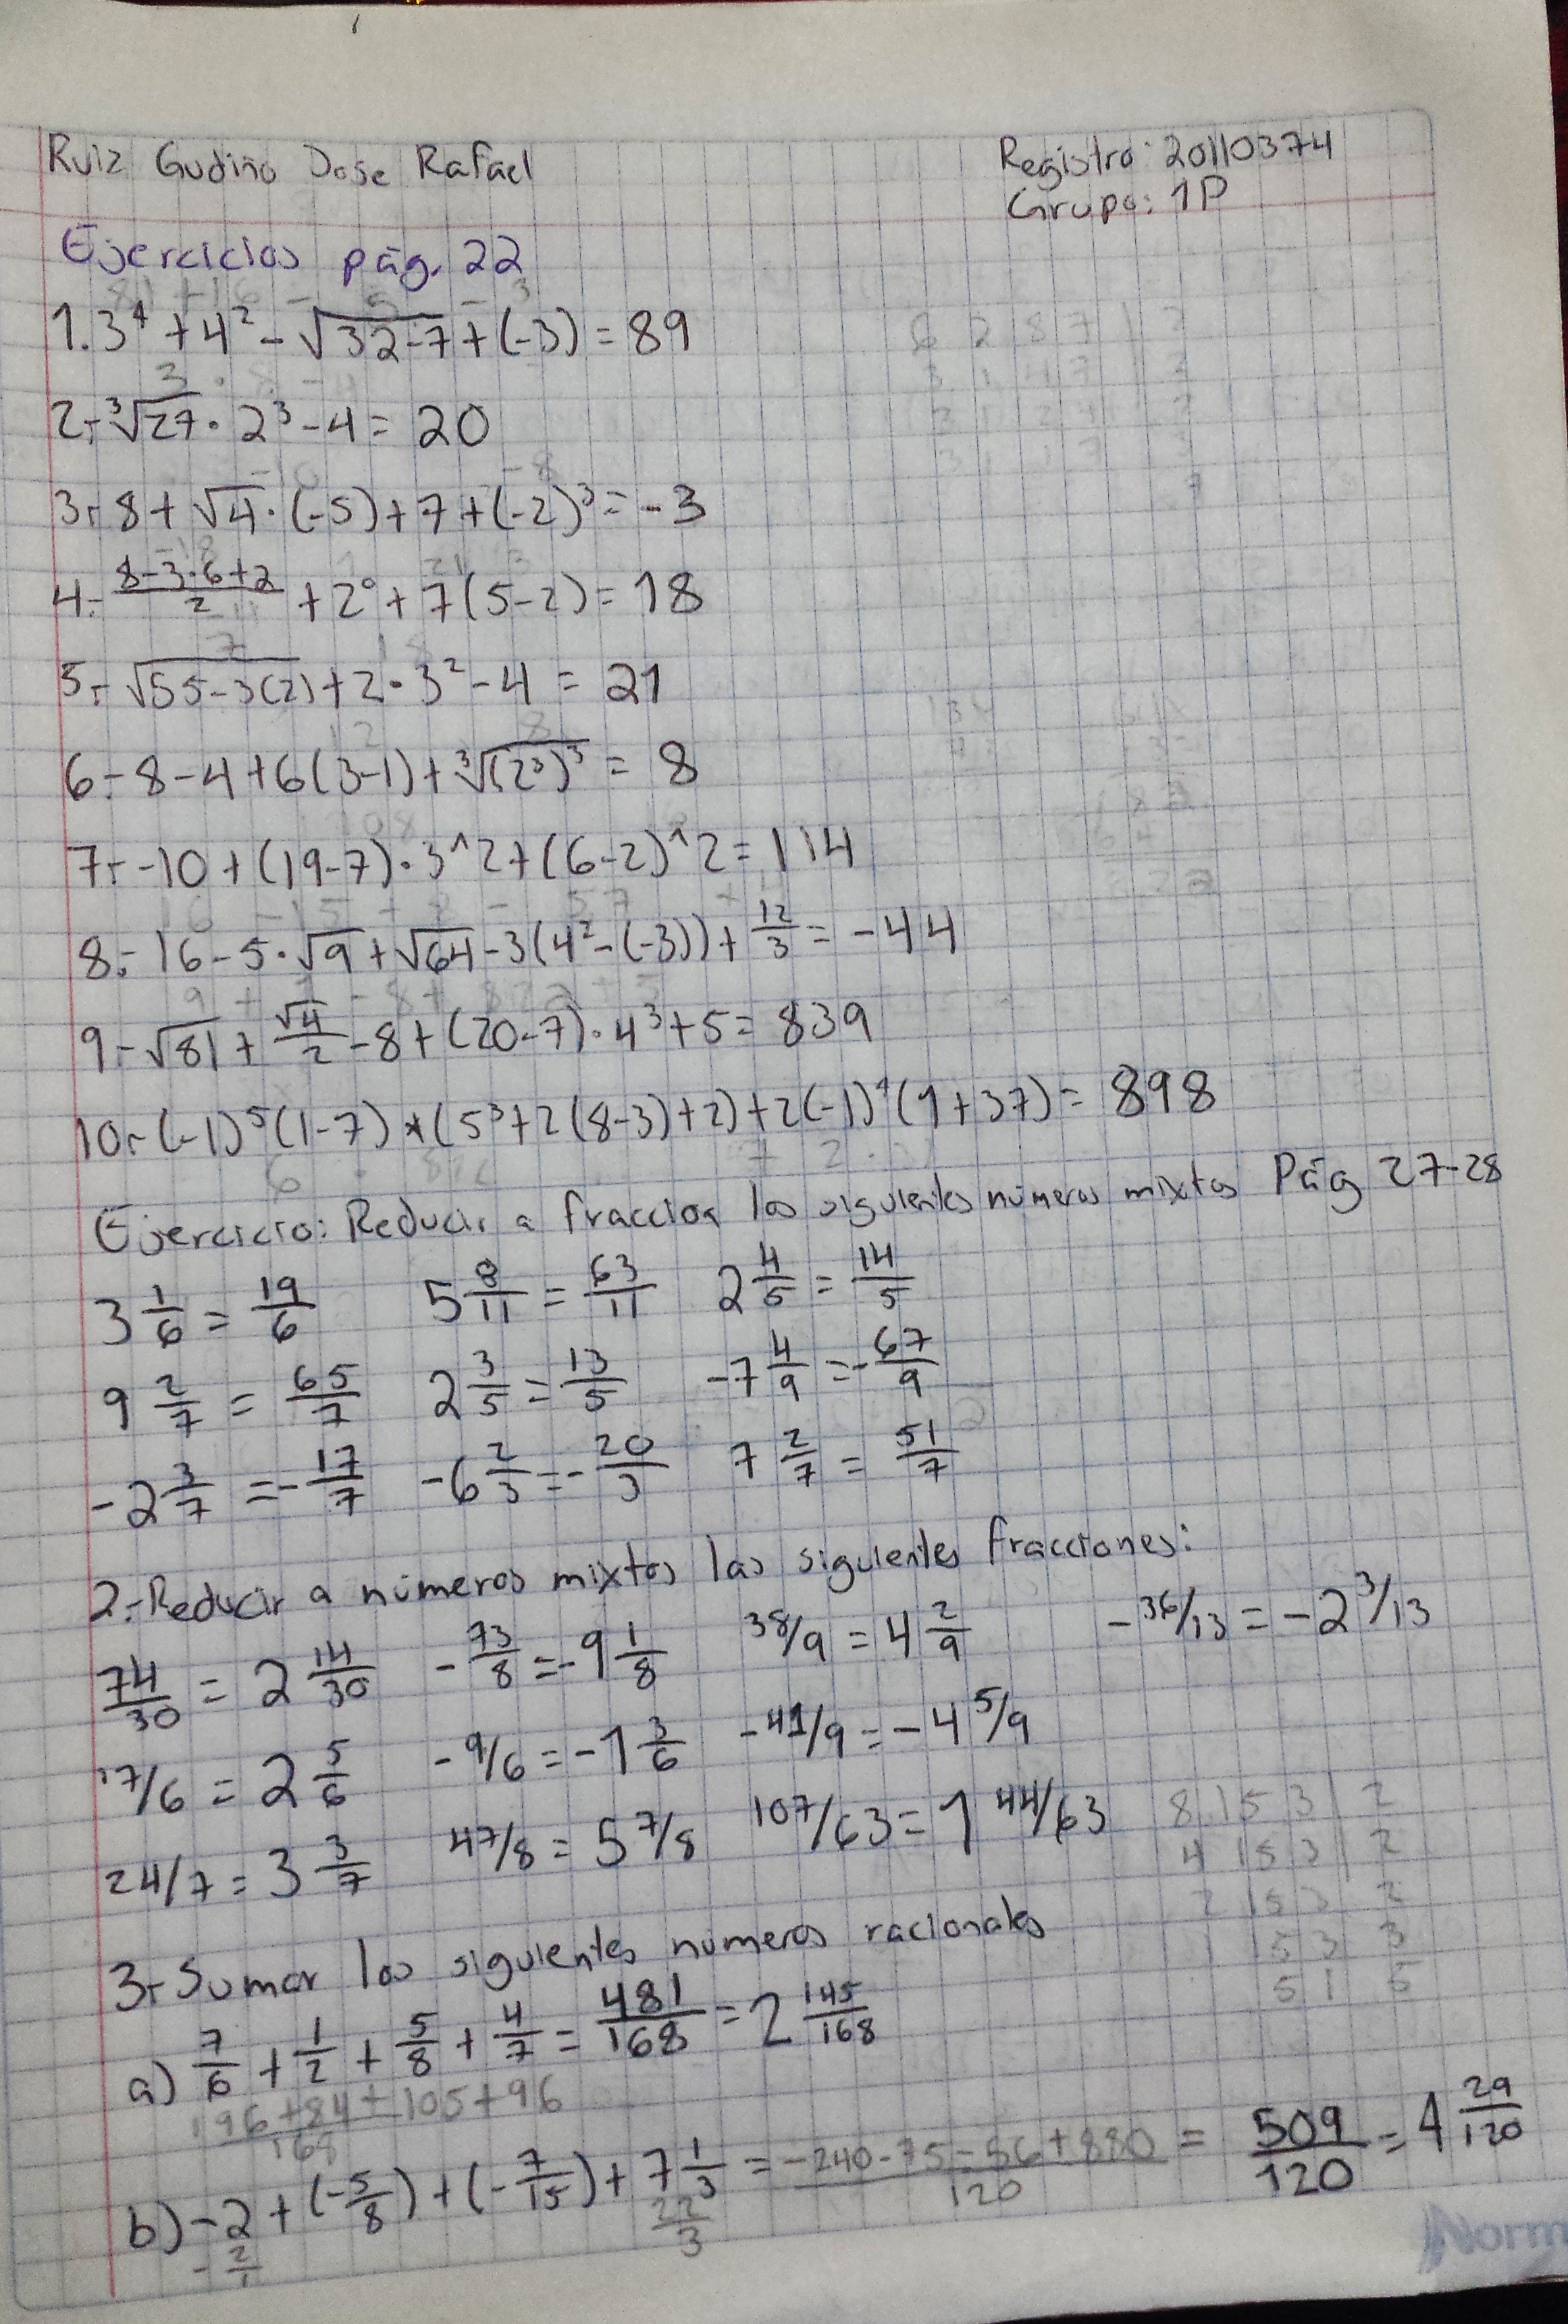 Ruiz Gudiño Jose Rafael
Registro: 20110374
Grupo: 1P
Ejercicios pág. 22
81+16 - 5 - 3
1. 3⁴ + 4² - √(32-7) + (-3) = 89
3 · 8 - 4
2.- ³√27 · 2³ - 4 = 20
-10 -8
3.- 8 + √4 · (-5) + 7 + (-2)³ = -3
-18 21 3
4.- (8-3·6+2)/2 + 2° + 7(5-2) = 18
7 18
5.- √(55-3(2)) + 2 · 3² - 4 = 21
12 8
6.- 8 - 4 + 6(3-1) + ³√(2³)³ = 8
108
7.- -10 + (19-7) · 3^2 + (6-2)^2 = 114
16 - 15 + 8 - 57 +
8.- 16 - 5 · √9 + √64 - 3(4² - (-3)) + 12/3 = -44
9 + - 8 + 832 + 5
9.- √81 + √4/2 - 8 + (20-7) · 4³ + 5 = 839
10.- (-1)⁵(1-7) * (5³ + 2(8-3) + 2) + 2(-1)⁴(1+37) = 898
6
Ejercicio: Reducir a fraccion los siguientes números mixtos Pág 27-28
3 1/6 = 19/6 5 8/11 = 63/11 2 4/5 = 14/5
9 2/7 = 65/7 2 3/5 = 13/5 -7 4/9 = -67/9
-2 3/7 = -17/7 -6 2/3 = -20/3 7 2/7 = 51/7
2.- Reducir a números mixtos las siguientes fracciones:
74/30 = 2 14/30 -73/8 = -9 1/8 38/9 = 4 2/9 -36/13 = -2 3/13
17/6 = 2 5/6 -9/6 = -1 3/6 -41/9 = -4 5/9
24/7 = 3 3/7 47/8 = 5 7/8 107/63 = 1 44/63
8 15 3 | 2
4 15 3 | 2
2 15 3 2
1 15 3 3
5 1 5
3.- Sumar los siguientes números racionales
a) 7/6 + 1/2 + 5/8 + 4/7 = 481/168 = 2 145/168
196+84+105+96
168
b) -2 + (-5/8) + (-7/15) + 7 1/3 = (-240-75-56+880)/120 = 509/120 = 4 29/120
-2/1 22/3
Norm